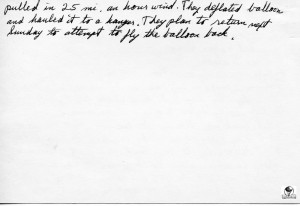 pulled in 25 mi. an hour wind. They deflated balloon
and hauled it to a hanger. They plan to return next
Sunday to attempt to fly the balloon back.